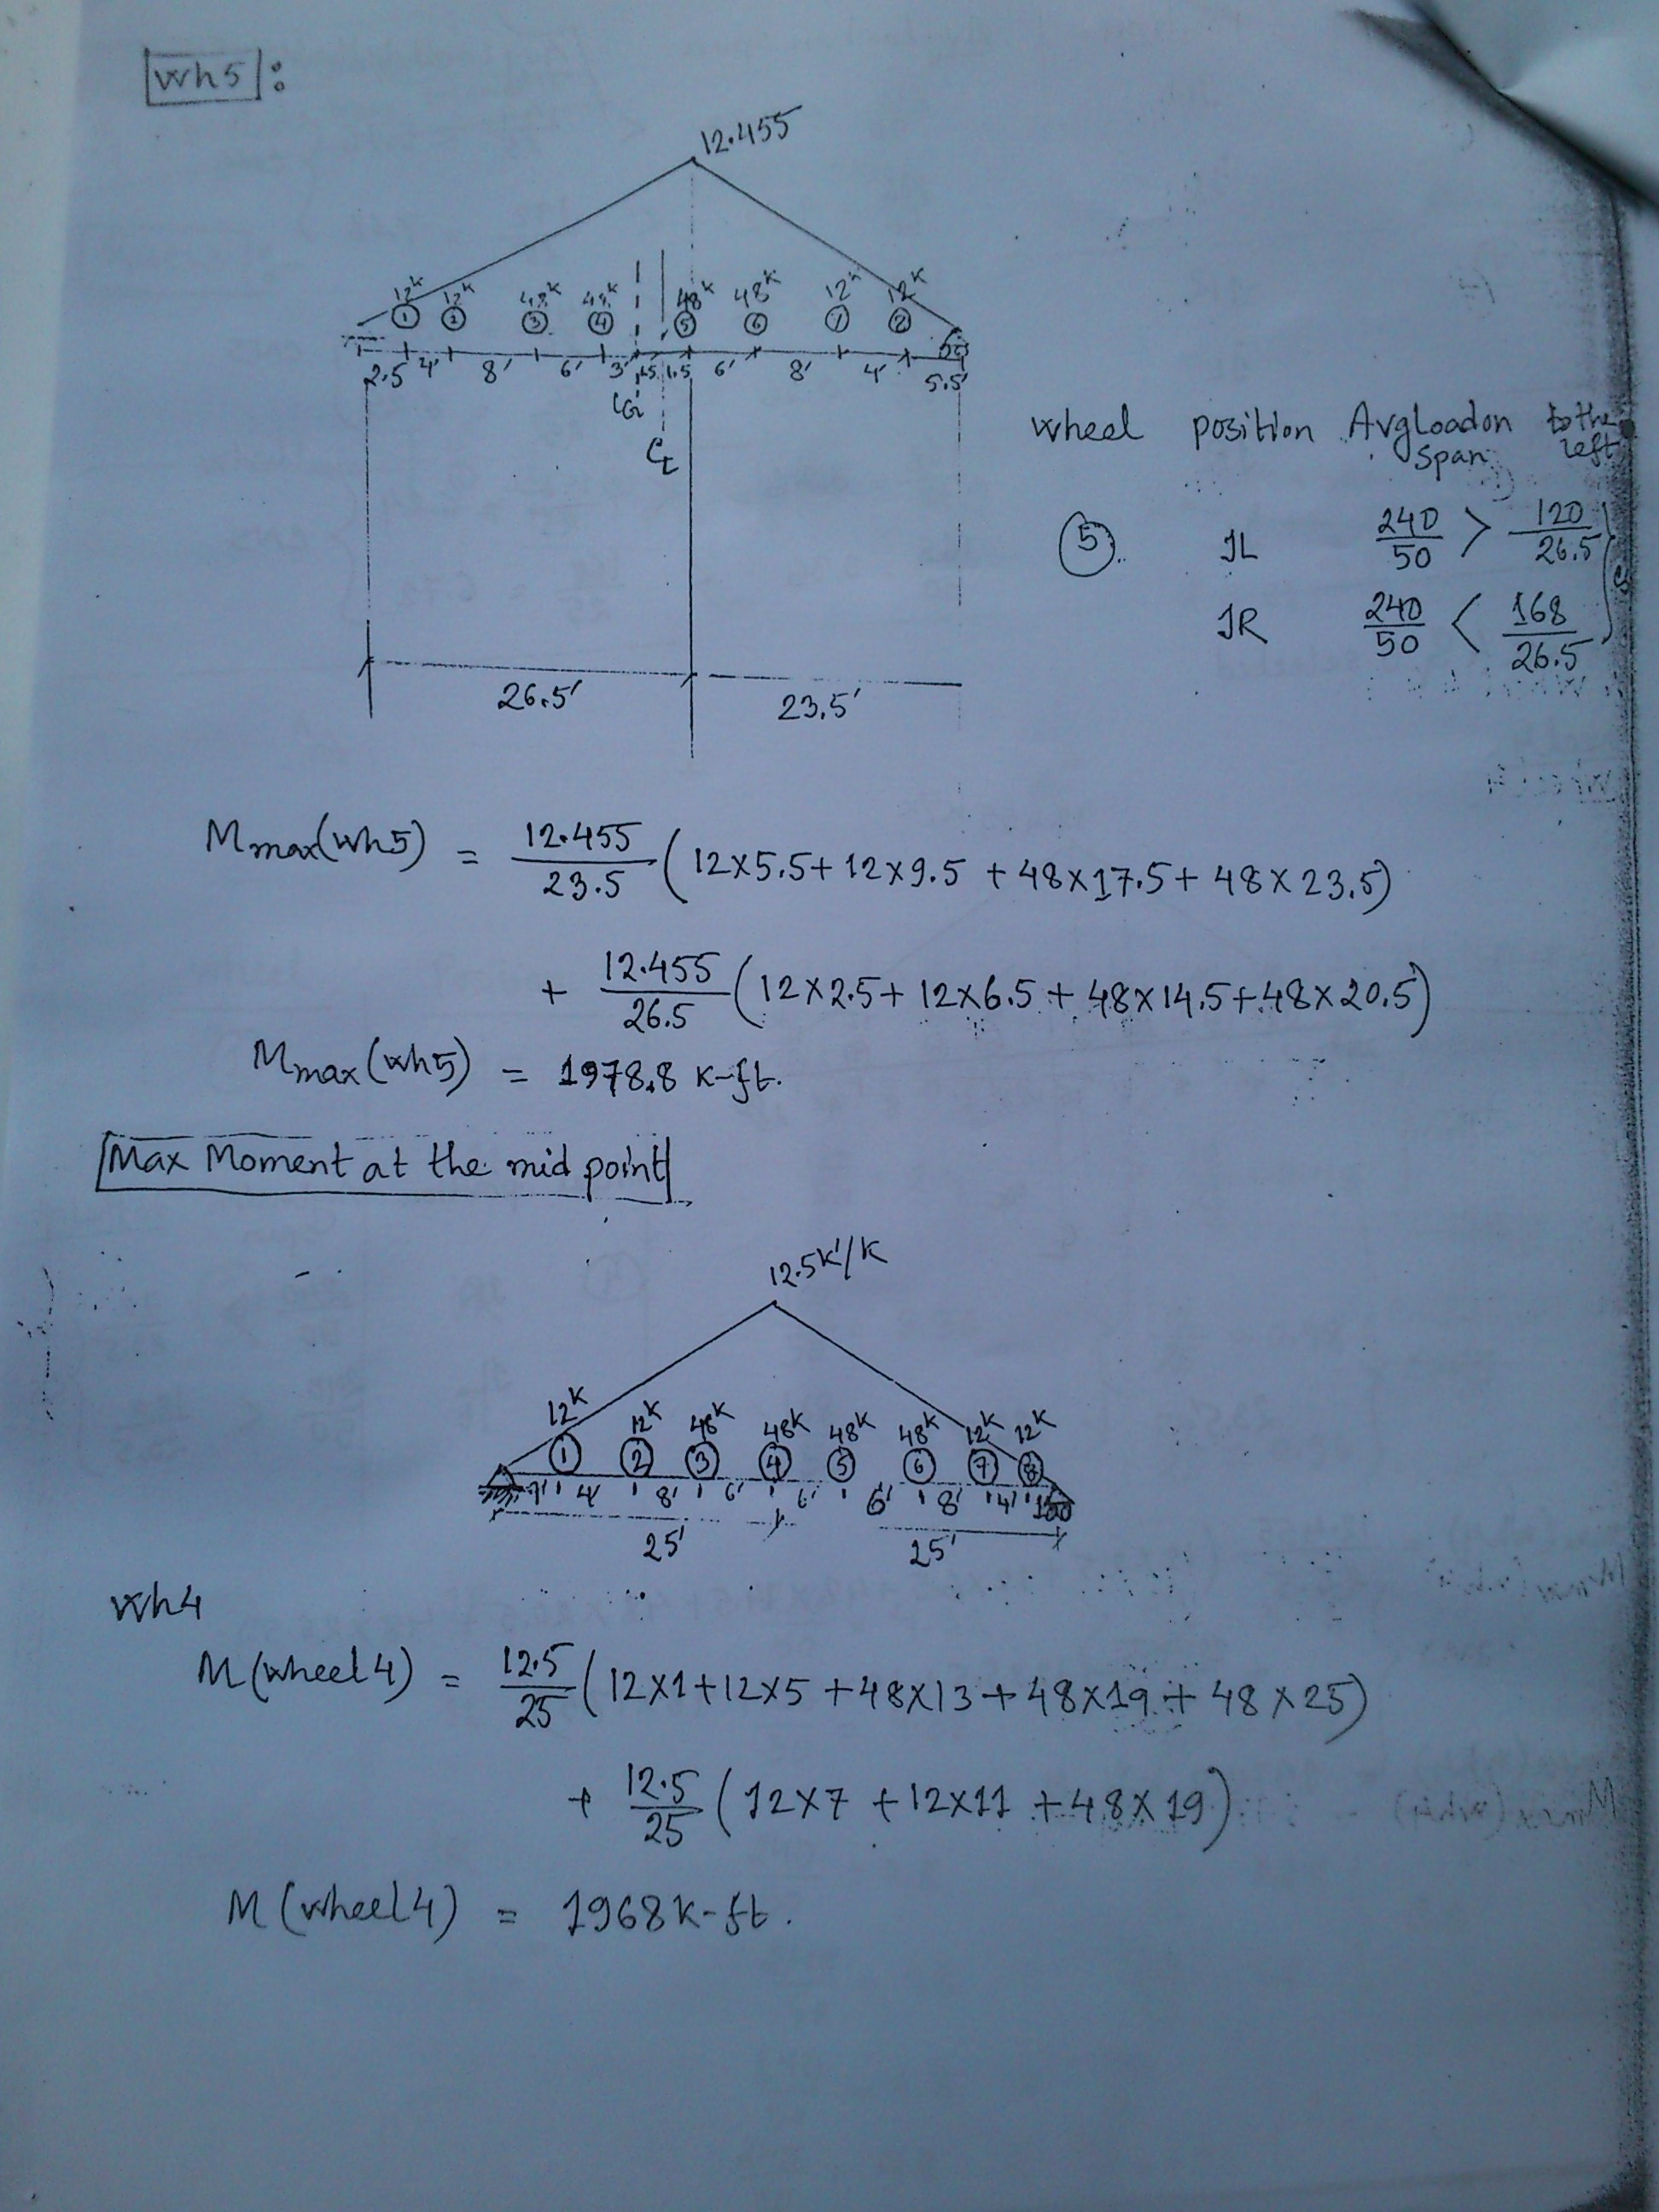 wh5:
12.455
12k 12k 48k 48k 48k 48k 12k 12k
1 2 3 4 5 6 7
2.5 4' 8' 6' 3' 1.5 1.5 6' 8' 4' 5.5'
CG
CL
wheel position Avg load on span to the left
5 JL 240/50 > 120/26.5
JR 240/50 < 168/26.5
26.5' 23.5'
Mmax(wh5) = 12.455/23.5 (12×5.5+12×9.5+48×17.5+48×23.5)
+ 12.455/26.5 (12×2.5+12×6.5+48×14.5+48×20.5)
Mmax(wh5) = 1978.8 k-ft.
Max Moment at the mid point
12.5k'/k
12k 12k 48k 48k 48k 48k 12k 12k
1 2 3 4 5 6 7 8
7' 4' 8' 6' 6' 6' 8' 4' 1
25' 25'
wh4
M(wheel 4) = 12.5/25 (12×1+12×5+48×13+48×19+48×25)
+ 12.5/25 (12×7+12×11+48×19)
M(wheel 4) = 1968 k-ft.